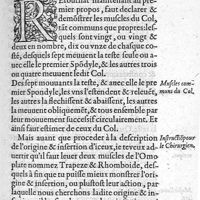 Retournât maintenant au
premier propos, faut declarer &
demõstrer les muscles du Col,
tãt communs que propres: les-
quels sont vingt, ou vingt &
deux en nombre, dix ou vnze de chasque co-
sté, desquels sept meuuent la teste seule ou a-
uec le premier Spõdyle, & les autres trois
ou quatre meuuent ledit Col.
Des sept mouuants la teste, & auec elle le pre-
mier Spondyle, les vns l'estendent & releuẽt,
les autres la flechissent & abaissent, les autres
la meuuent obliquemẽt, & tous ensemble par
leur mouuement successif circulairement. Et
ainsi faut estimer de ceux du Col.
Muscles com-
muns du Col.
Mais auant que proceder à la description
de l'origine & insertion d'iceux, ie te veux ad-
uertir qu'il faut leuer deux muscles de l'Omo
plate nommez Trapeze & Rhomboide, des-
quels à fin que tu puisse mieux monstrer l'ori-
gine & insertion, ou plustost leur action, par
laquelle nous cherchons ladite origine & in-
Instructiõ pour
le Chirurgien.